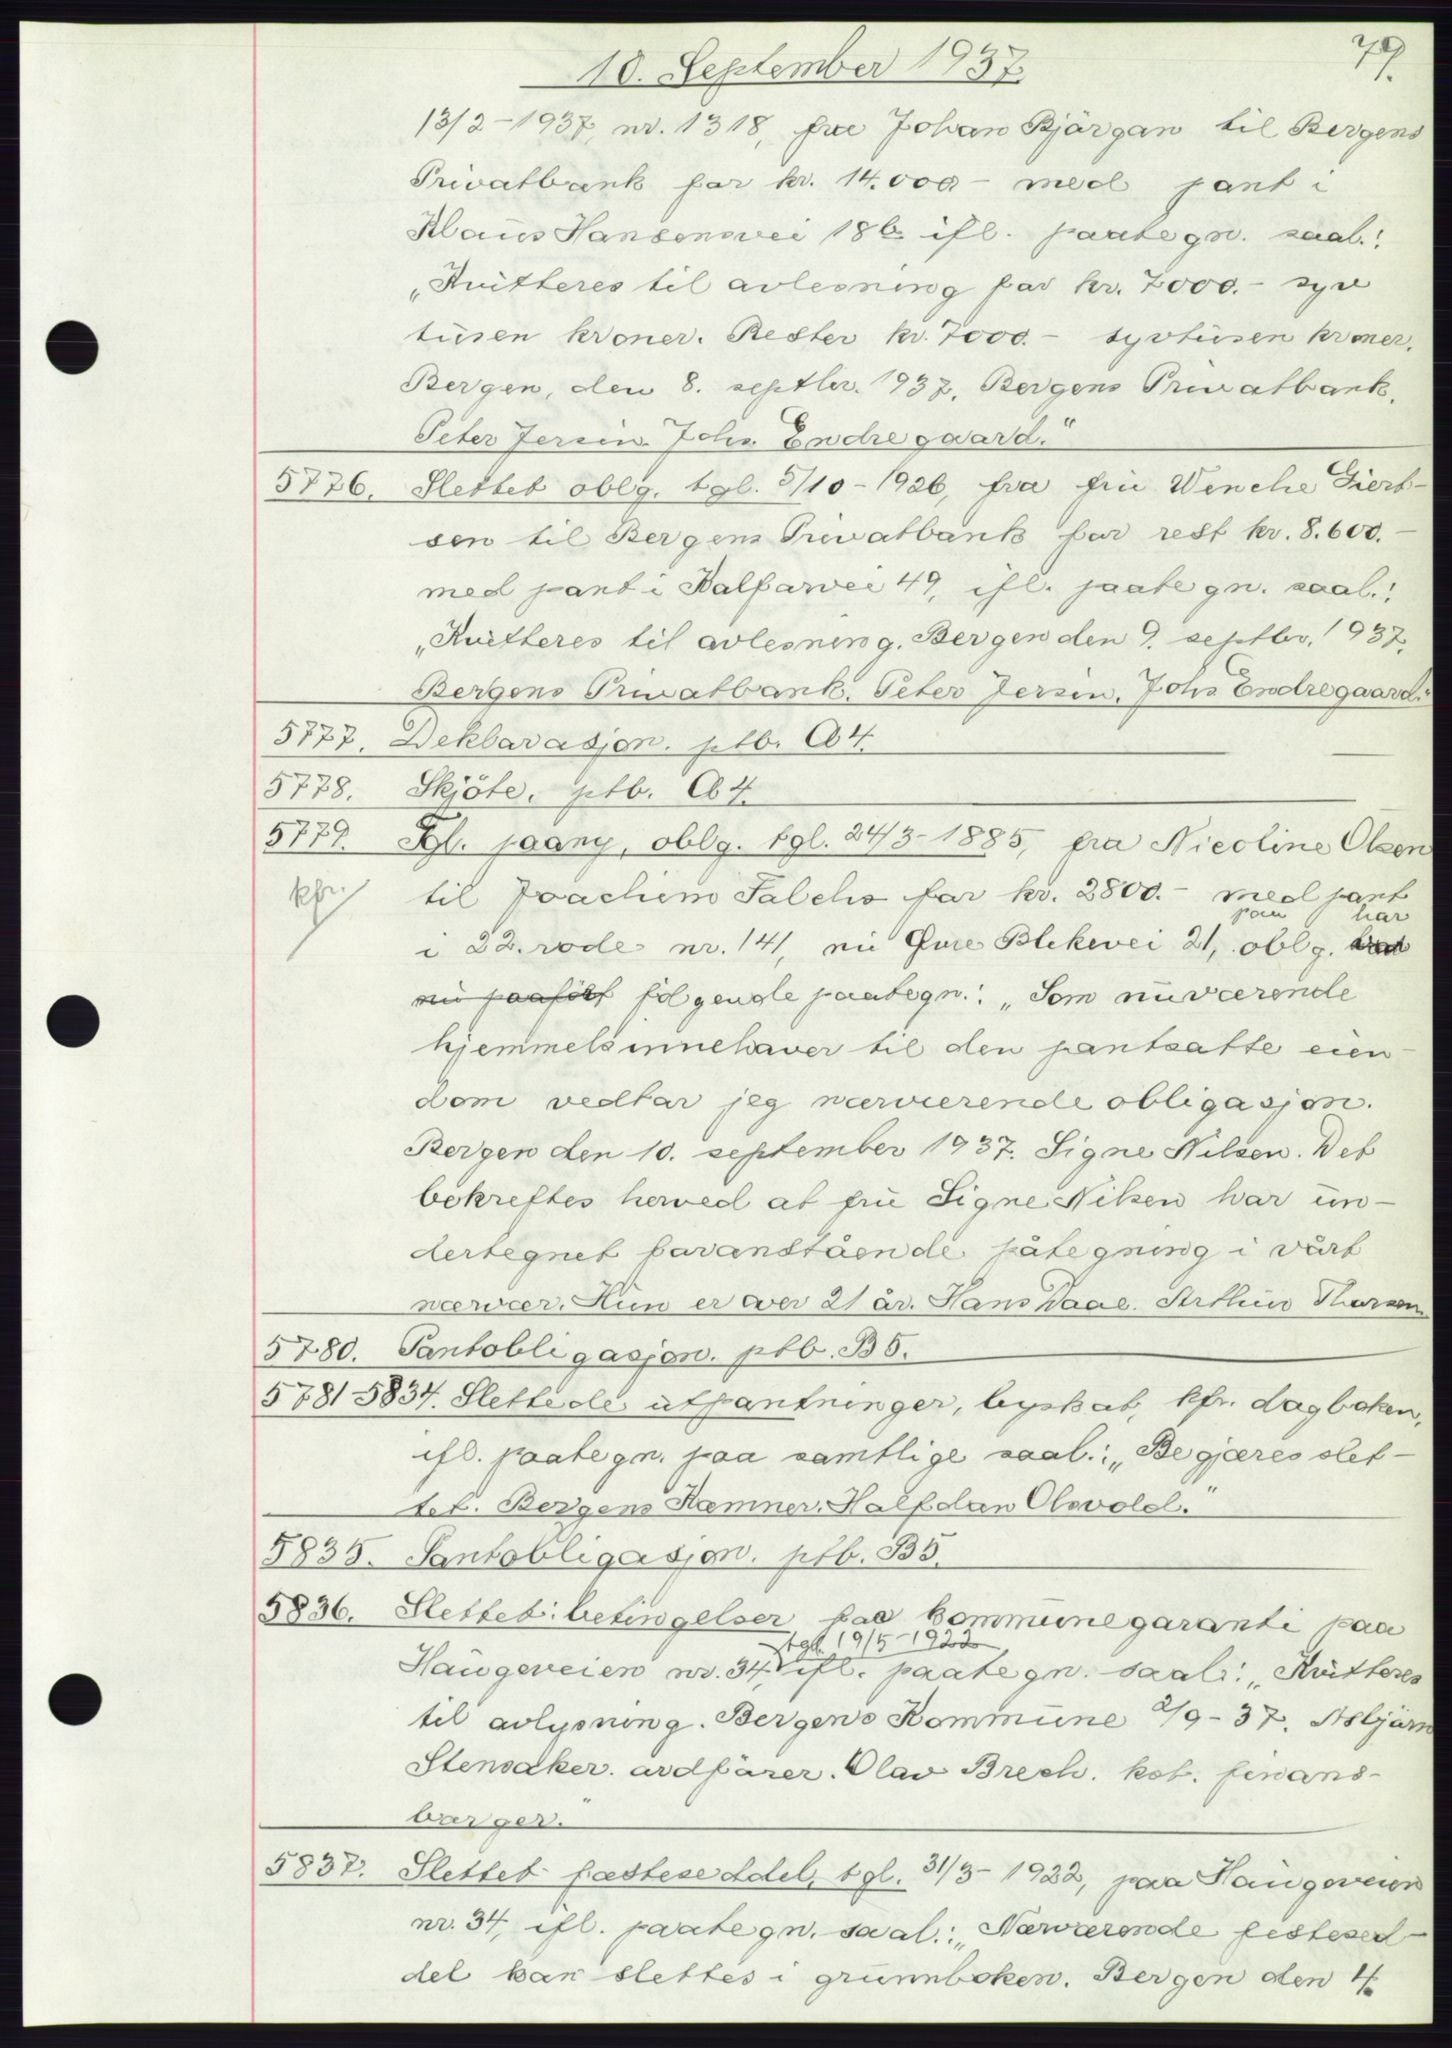 10. September 1937.
79.
13/2-1937, nr. 1318, fra Johan Bjørgan til Bergens
Privatbank for kr. 14.000- med pant i
Klaus Hansensvei 18b ifl. paategn. saal.:
„Kvitteres til avlesning for kr. 7000.- syv
tusen kroner. Rester kr. 7000.- syvtusen kroner.
Bergen, den 8. septbr. 1937, Bergens Privatbank.
Peter Jersin. Johs Endregaard."
5776. Slettet oblg. tgl. 5/10-1926, fra fru Wenche Giert-
sen til Bergens Privatbank for rest kr. 8.600.-
med pant i Kalfarvei 49, ifl. paategn. saal.:
„Kvitteres til avlesning. Bergen den 9. septbr. 1937.
Bergens Privatbank. Peter Jersin. Johs Endregaard."
5777. Deklarasjon. ptb. A4.
5778. Skjöte. ptb. A4.
5779. Tgl. paany, oblg. tgl. 24/3-1885, fra Nicoline Olsen
kfr. til Joachim Falchs for kr. 2800.- med pant
paa har
i 22. rode nr. 141, nu Øvre Blekevei 21, oblg.
nu paaført følgende paategn.: „Som nuværende
hjemmelsinnehaver til den pantsatte eien-
dom vedtar jeg nærværende obligasjon.
Bergen den 10. september 1937. Signe Nilsen. Det
bekreftes herved at fru Signe Nilsen har un-
dertegnet foranstående påtegning i vårt
nærvær. Hun er over 21 år. Hans Daae. Arthur Thorsen
5780. Pantobligasjon. ptb. B5.
5781-5834. Slettede utpantninger, byskat, kfr. dagboken,
ifl. paategn. paa samtlige saal.: „Begjæres slet-
tet. Bergens Kemner. Halfdan Olsvold."
5835. Pantobligasjon. ptb. B5.
5836. Slettet: betingelser for kommunegaranti paa
tgl. 19/5-1922
Haugeveien nr. 34, ifl. paategn. saal.: „Kvitteres
til avlysning. Bergens Kommune 2/9-37. Asbjørn
Stensaker. ordfører. Olav Brech. kst. finans-
borger."
5837. Slettet festeseddel, tgl. 31/3-1922, paa Haugeveien
nr. 34, ifl. paategn. saal.: „Nærværende festesed-
del kan slettes i grunnboken. Bergen den 4.